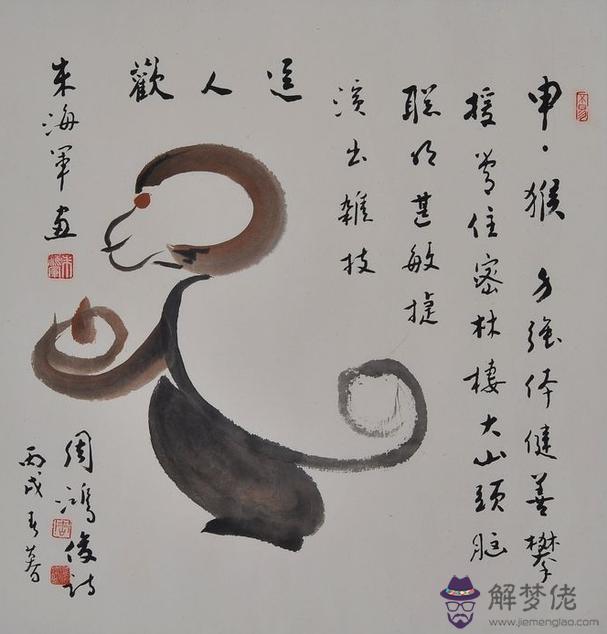 申·猴 力强体健善攀
援常住密林棲大山頭脑
聪明甚敏捷
演出雜技
逗人歡
朱海軍画
周鴻俊詩
丙戌春暮
解梦佬
www.jiemenglao.com